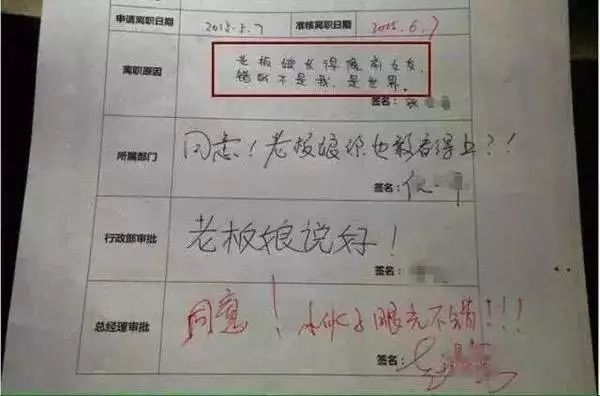 申请离职日期 2015.5.7 准核离职日期 2015.6.7
离职原因
老板娘长得像前女友,
错的不是我,是世界。
签名:
所属部门
同意!老板娘你也敢看得上?!
签名:
行政部审批
老板娘说好!
签名:
总经理审批
同意!小伙子眼光不错!!!
签名: